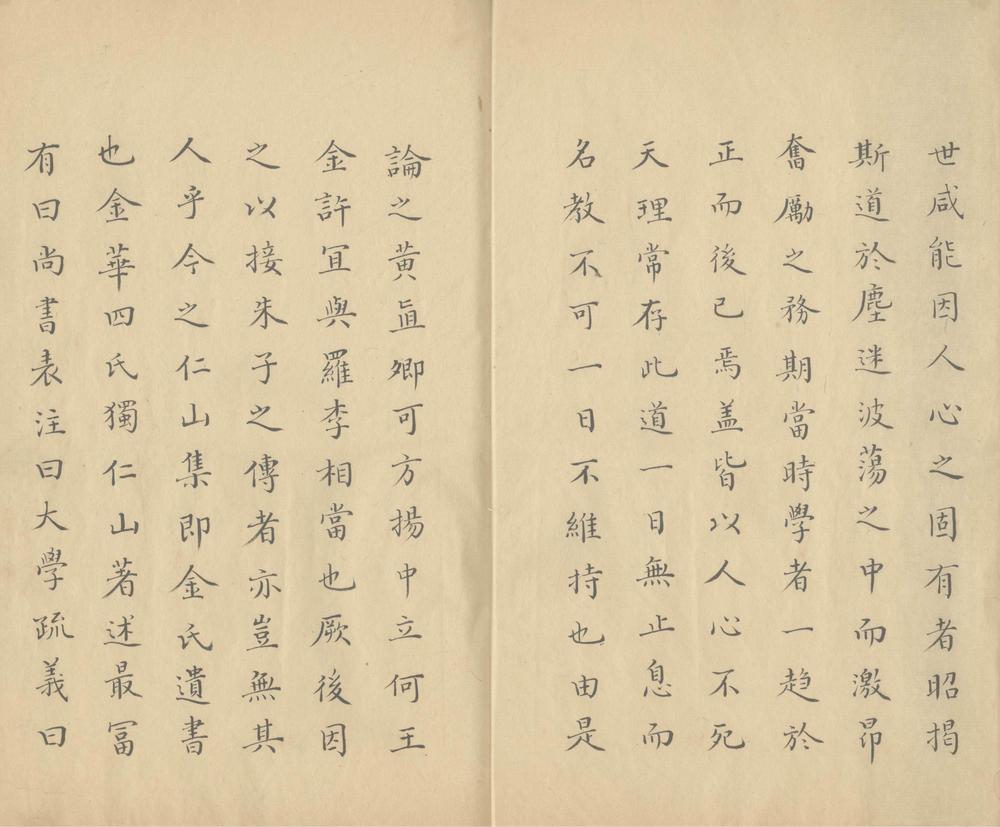 世咸能因人心之固有者昭揭
斯道於塵迷波蕩之中而激昂
奮勵之務期當時學者一趋於
正而後已焉盖皆以人心不死
天理常存此道一日無止息而
名教不可一日不維持也由是
論之黄眞卿可方揚中立何王
金許冝與羅李相當也厥後因
之以接朱子之傳者亦豈無其
人乎今之仁山集即金氏遺書
也金華四氏獨仁山著述最冨
有曰尚書表注曰大學疏義曰